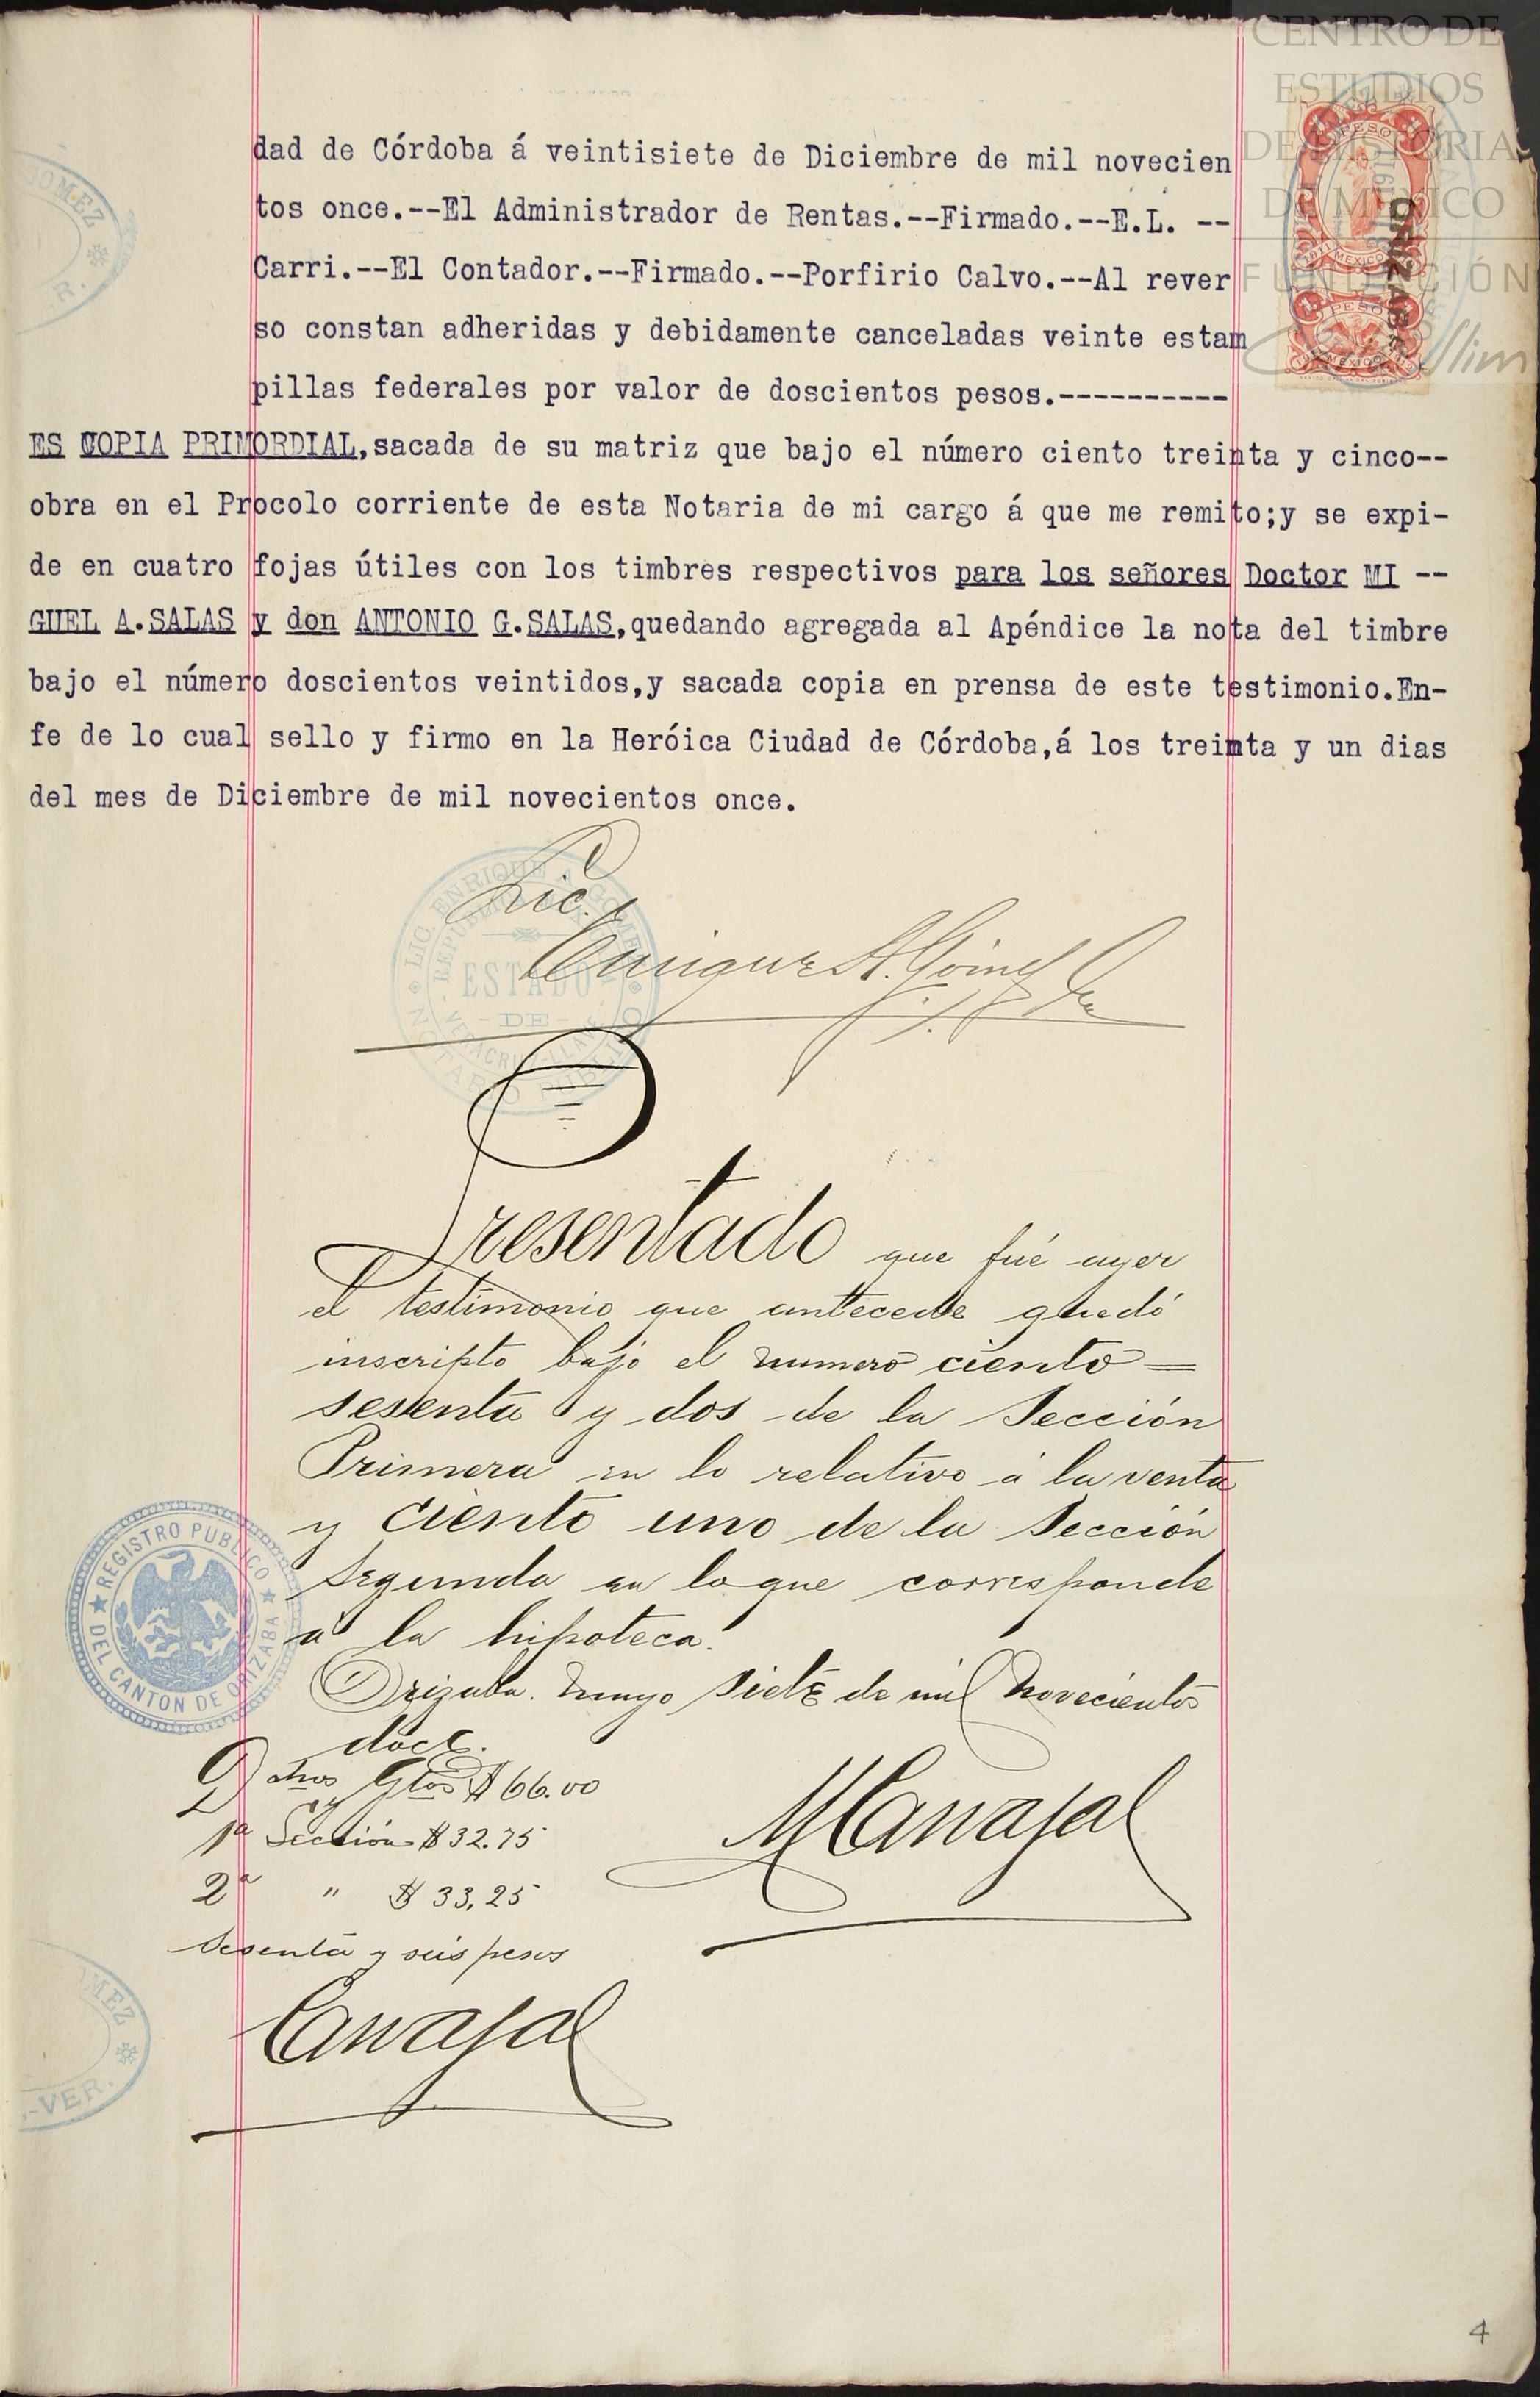 CENTRO DE
ESTUDIOS
DE HISTORIA
DE MEXICO
FUNDACIÓN
ORIZABA
PESO
MEXICO
PESO
MEXICO
dad de Córdoba á veintisiete de Diciembre de mil novecien
tos once.--El Administrador de Rentas.--Firmado.--E.L. --
Carri.--El Contador.--Firmado.--Porfirio Calvo.--Al rever
so constan adheridas y debidamente canceladas veinte estam
pillas federales por valor de doscientos pesos.----------
ES COPIA PRIMORDIAL,sacada de su matriz que bajo el número ciento treinta y cinco--
obra en el Procolo corriente de esta Notaria de mi cargo á que me remito;y se expi-
de en cuatro fojas útiles con los timbres respectivos para los señores Doctor MI --
GUEL A.SALAS y don ANTONIO G.SALAS,quedando agregada al Apéndice la nota del timbre
bajo el número doscientos veintidos,y sacada copia en prensa de este testimonio.En-
fe de lo cual sello y firmo en la Heróica Ciudad de Córdoba,á los treinta y un dias
del mes de Diciembre de mil novecientos once.
LIC. ENRIQUE A. GOMEZ
NOTARIO PUBLICO
ESTADO
DE
VERACRUZ-LLAVE
Lic.
Enrique A. Gómez
Presentado que fué ayer
el testimonio que antecede quedó
inscripto bajo el numero ciento =
sesenta y dos de la Sección
Primera en lo relativo á la venta
y ciento uno de la Sección
Segunda en lo que corresponde
á la hipoteca.
Orizaba. Mayo siete de mil novecientos
doce.
REGISTRO PUBLICO
DEL CANTON DE ORIZABA
Dchos y Gtos $ 66.00
1a Sección $ 32.75
2a " $ 33,25
Sesenta y seis pesos
MCarvajal
Carvajal
GOMEZ
R.
MEZ
.-VER.
4